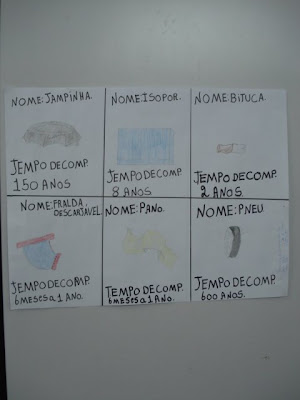 NOME: TAMPINHA.
TEMPO DECOMP.
150 ANOS
NOME: ISOPOR.
TEMPO DECOMP.
8 ANOS
NOME: BITUCA.
TEMPO DECOMP.
2 ANOS
NOME: FRALDA
DESCARTÁVEL
TEMPO DECOMP.
6 MESES a 1 ANO.
NOME: PANO.
TEMPO DECOMP.
6 MESES a 1 ANO.
NOME: PNEU
TEMPO DECOMP.
600 ANOS.